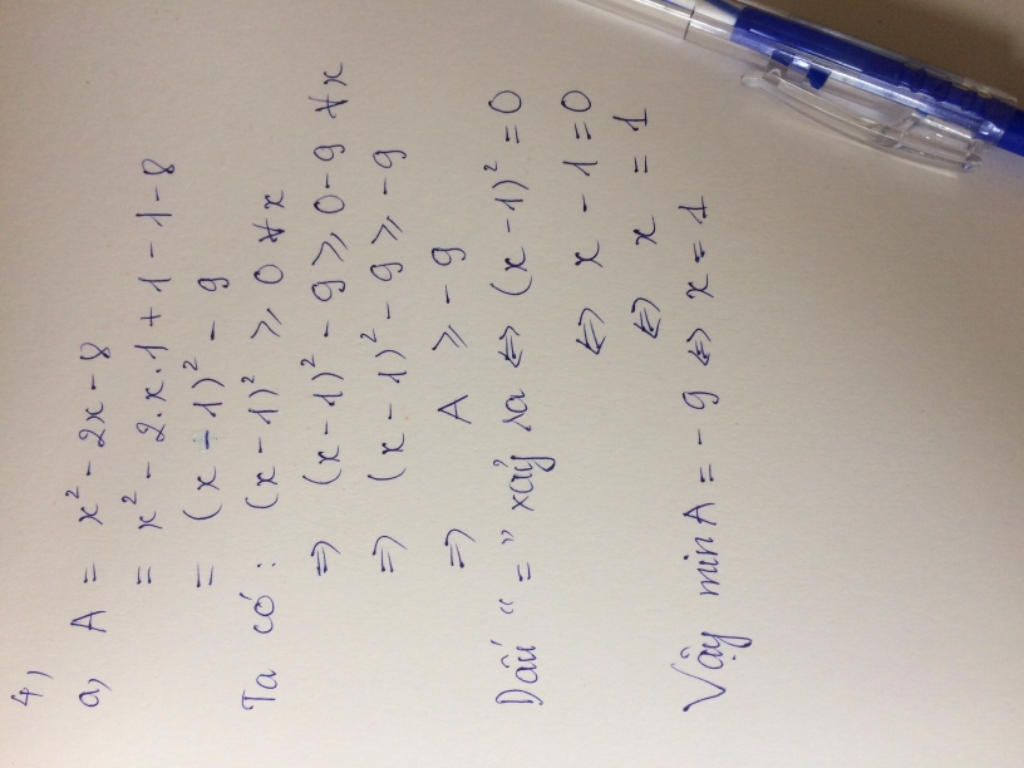 4,
a, A = x² - 2x - 8
= x² - 2.x.1 + 1 - 1 - 8
= (x - 1)² - 9
Ta có: (x - 1)² ⩾ 0 ∀x
⇒ (x - 1)² - 9 ⩾ 0 - 9 ∀x
⇒ (x - 1)² - 9 ⩾ -9
⇒ A ⩾ -9
Dấu "=" xảy ra ⇔ (x - 1)² = 0
⇔ x - 1 = 0
⇔ x = 1
Vậy min A = -9 ⇔ x = 1